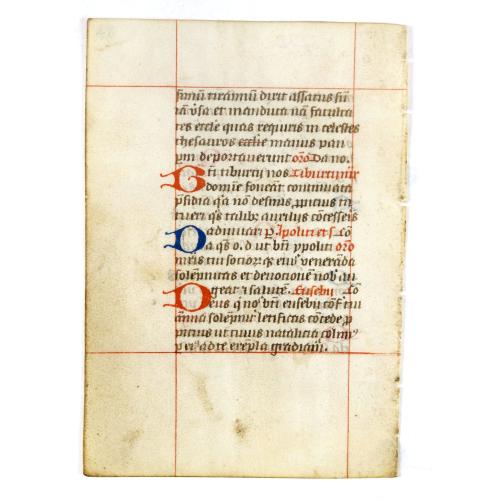 simū tirannū dixit assatus sū
iā vsa et manduca nā faculta
tes eccłe quas requiris in celestes
thesauros ecclie manus pau
pm deportauerunt oro Da no.
Bti tiburtij nos Tiburtini mr
domine foueāt continuata
psidia qa nō desinis ppitius in
tueri qs talibꝫ auxilijs cōcesseis
adiuuari p Ipoliti et s Co
Da qs o. d ut bti ypoliti oro
mris tui socioꝝ qꝫ eius venerāda
solēpnitas et deuotionē nob au
geat i salutē. Eusebij Co
Deus q nos bti eusebij cōf tui
ānua solēpni letificas cōcede p
pitius ut cuius natalicia colim
p ei ad te exēpla gradiam.